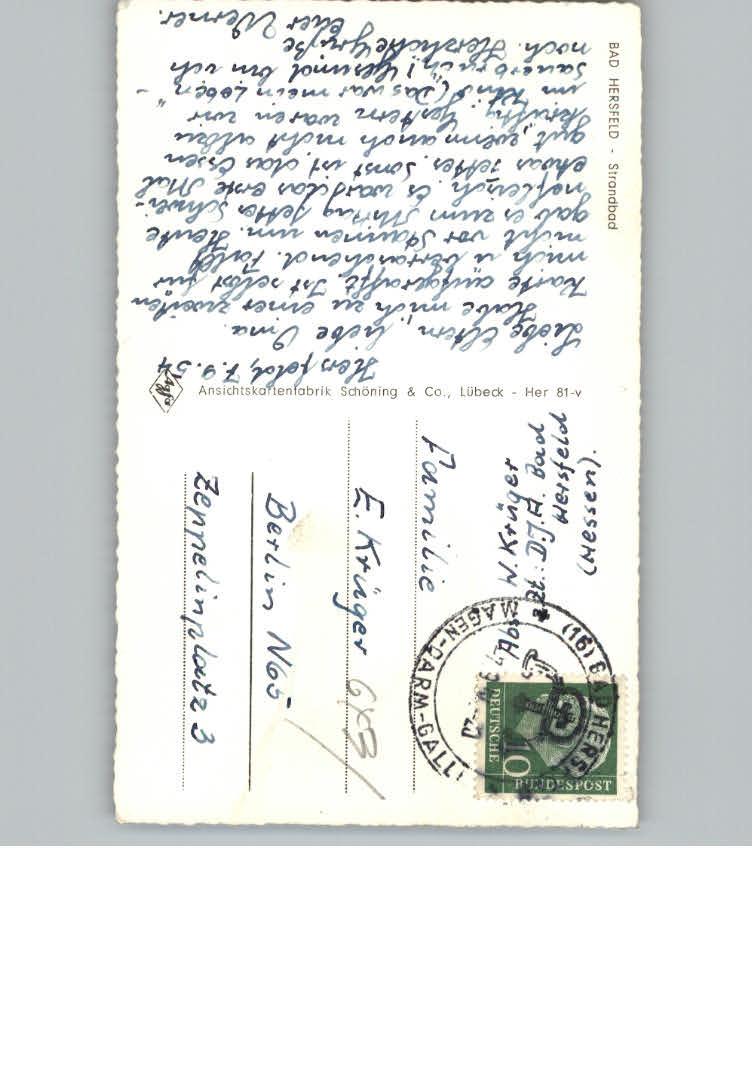 BAD HERSFELD - Strandbad
Hersfeld, 7.9.54
Liebe Eltern, liebe Oma
Habe mich zu einer zweiten
Karte aufgerafft. Ist selbst für
mich überraschend. Fallt
nicht vor Staunen um. Heute
gab es zum Mittag fettes Schwei-
nefleisch. Es war das erste Mal
etwas fettes. Sonst ist das Essen
gut, wenn auch nicht allzu
Gestern waren wir
im Kino (Das war mein Leben -
Sauerbruch)! Gesund bin ich
noch. Herzliche Grüße
Euer Werner.
Ansichtskartenfabrik Schöning & Co., Lübeck - Her 81-v
Abs. W. Krüger
D.J.H. Bad
Hersfeld
(Hessen).
Familie
E. Krüger
Berlin N65
Zeppelinplatz 3
(16) BAD HERSF
MAGEN-DARM-GALL
DEUTSCHE
BUNDESPOST
10